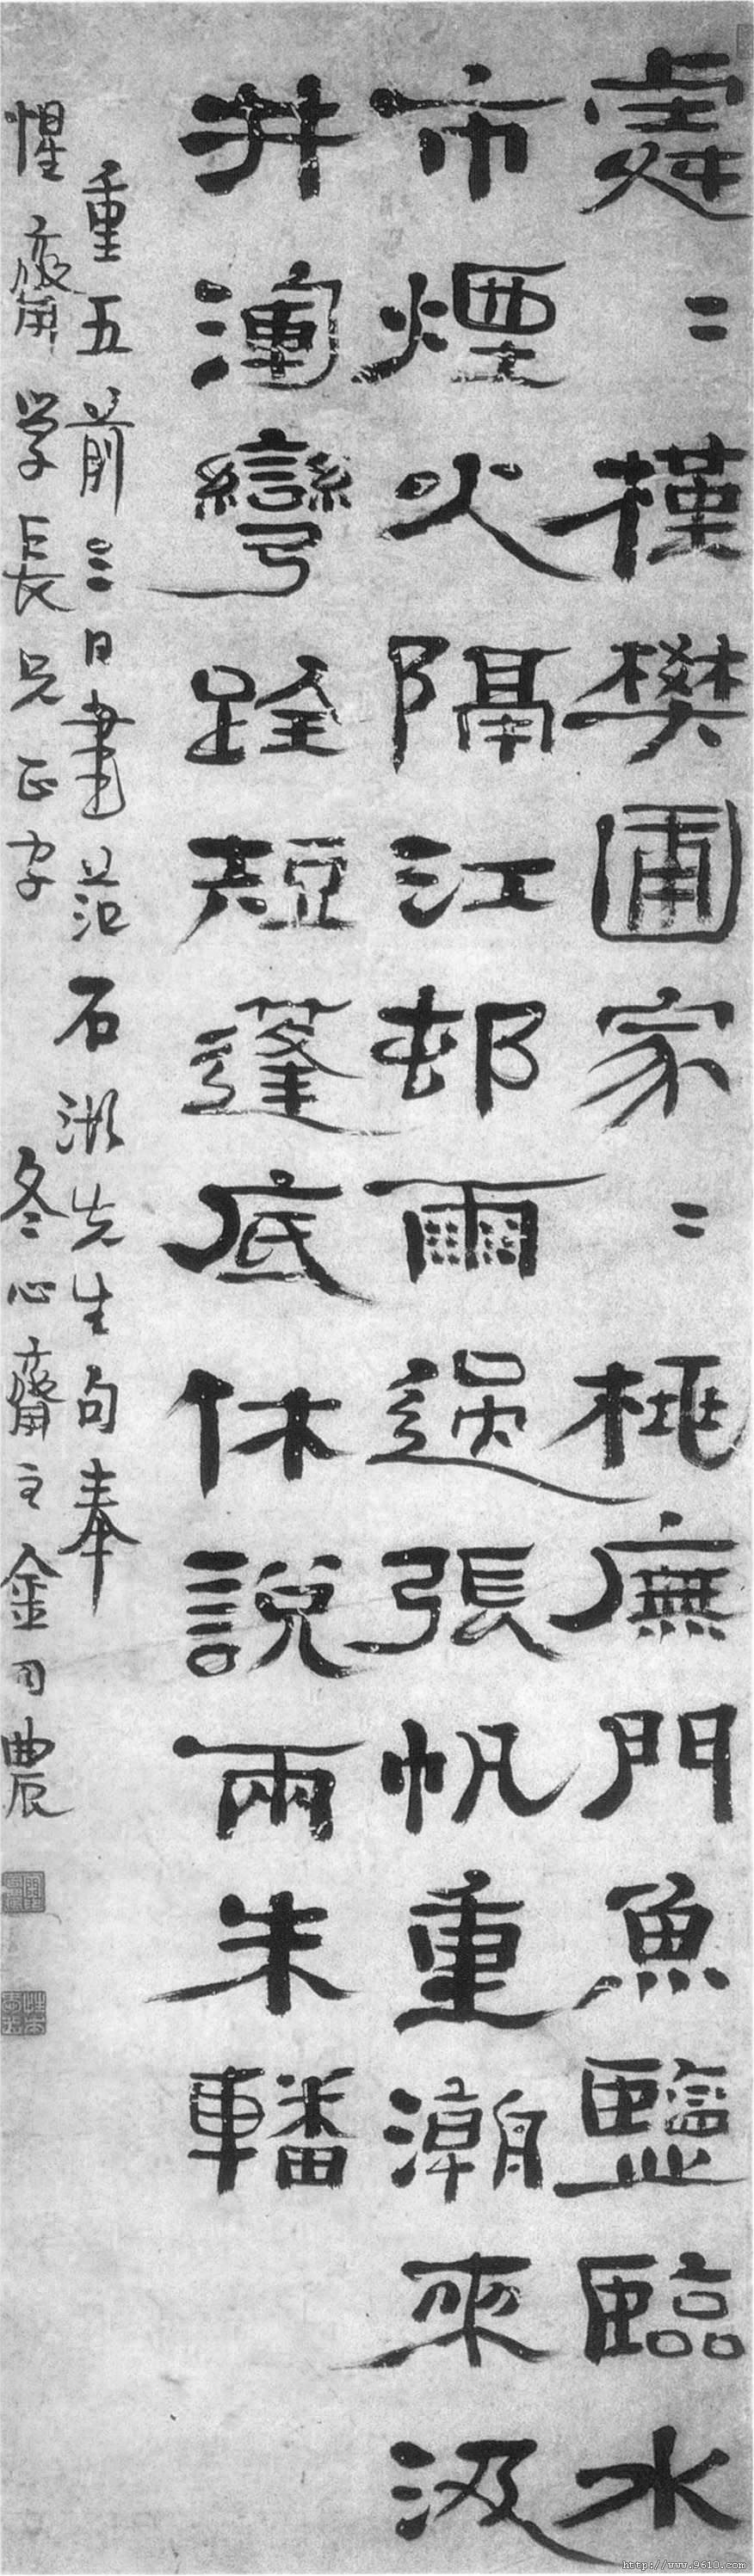 處〻槿樊圃家〻桃廡門魚鹽臨水
市煙火隔江邨雨過張帆重潮來汲
井渾彎跧短蓬底休說兩朱轓
重五前三日書范石湖先生句奉
惺齋学長兄正字 冬心齋主金司農
http://www.9610.com